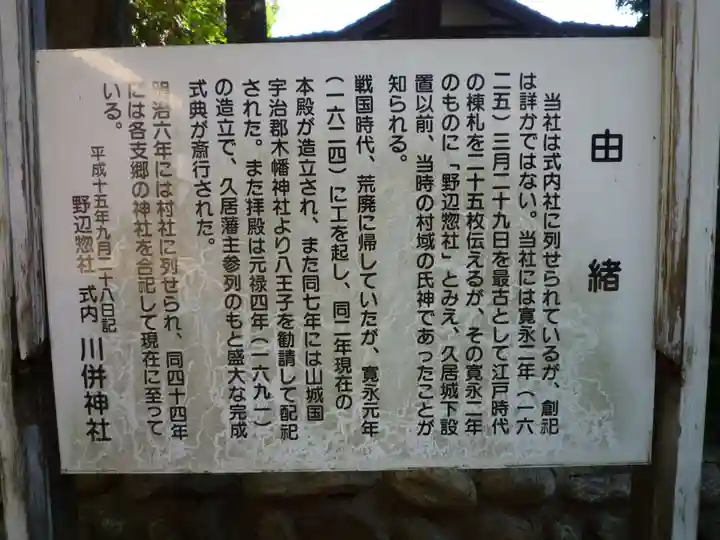 由緒
当社は式内社に列せられているが、創祀
は詳かではない。当社には寛永二年(一六
二五)三月二十九日を最古として江戸時代
の棟札を二十五枚伝えるが、その寛永二年
のものに「野辺惣社」とみえ、久居城下設
置以前、当時の村域の氏神であったことが
知られる。
戦国時代、荒廃に帰していたが、寛永元年
(一六二四)に工を起し、同二年現在の
本殿が造立され、また同七年には山城国
宇治郡木幡神社より八王子を勧請して配祀
された。また拝殿は元禄四年(一六九一)
の造立で、久居藩主参列のもと盛大な完成
式典が斎行された。
明治六年には村社に列せられ、同四十四年
には各支郷の神社を合祀して現在に至って
いる。
平成十五年九月二十八日記
野辺惣社 式内 川併神社